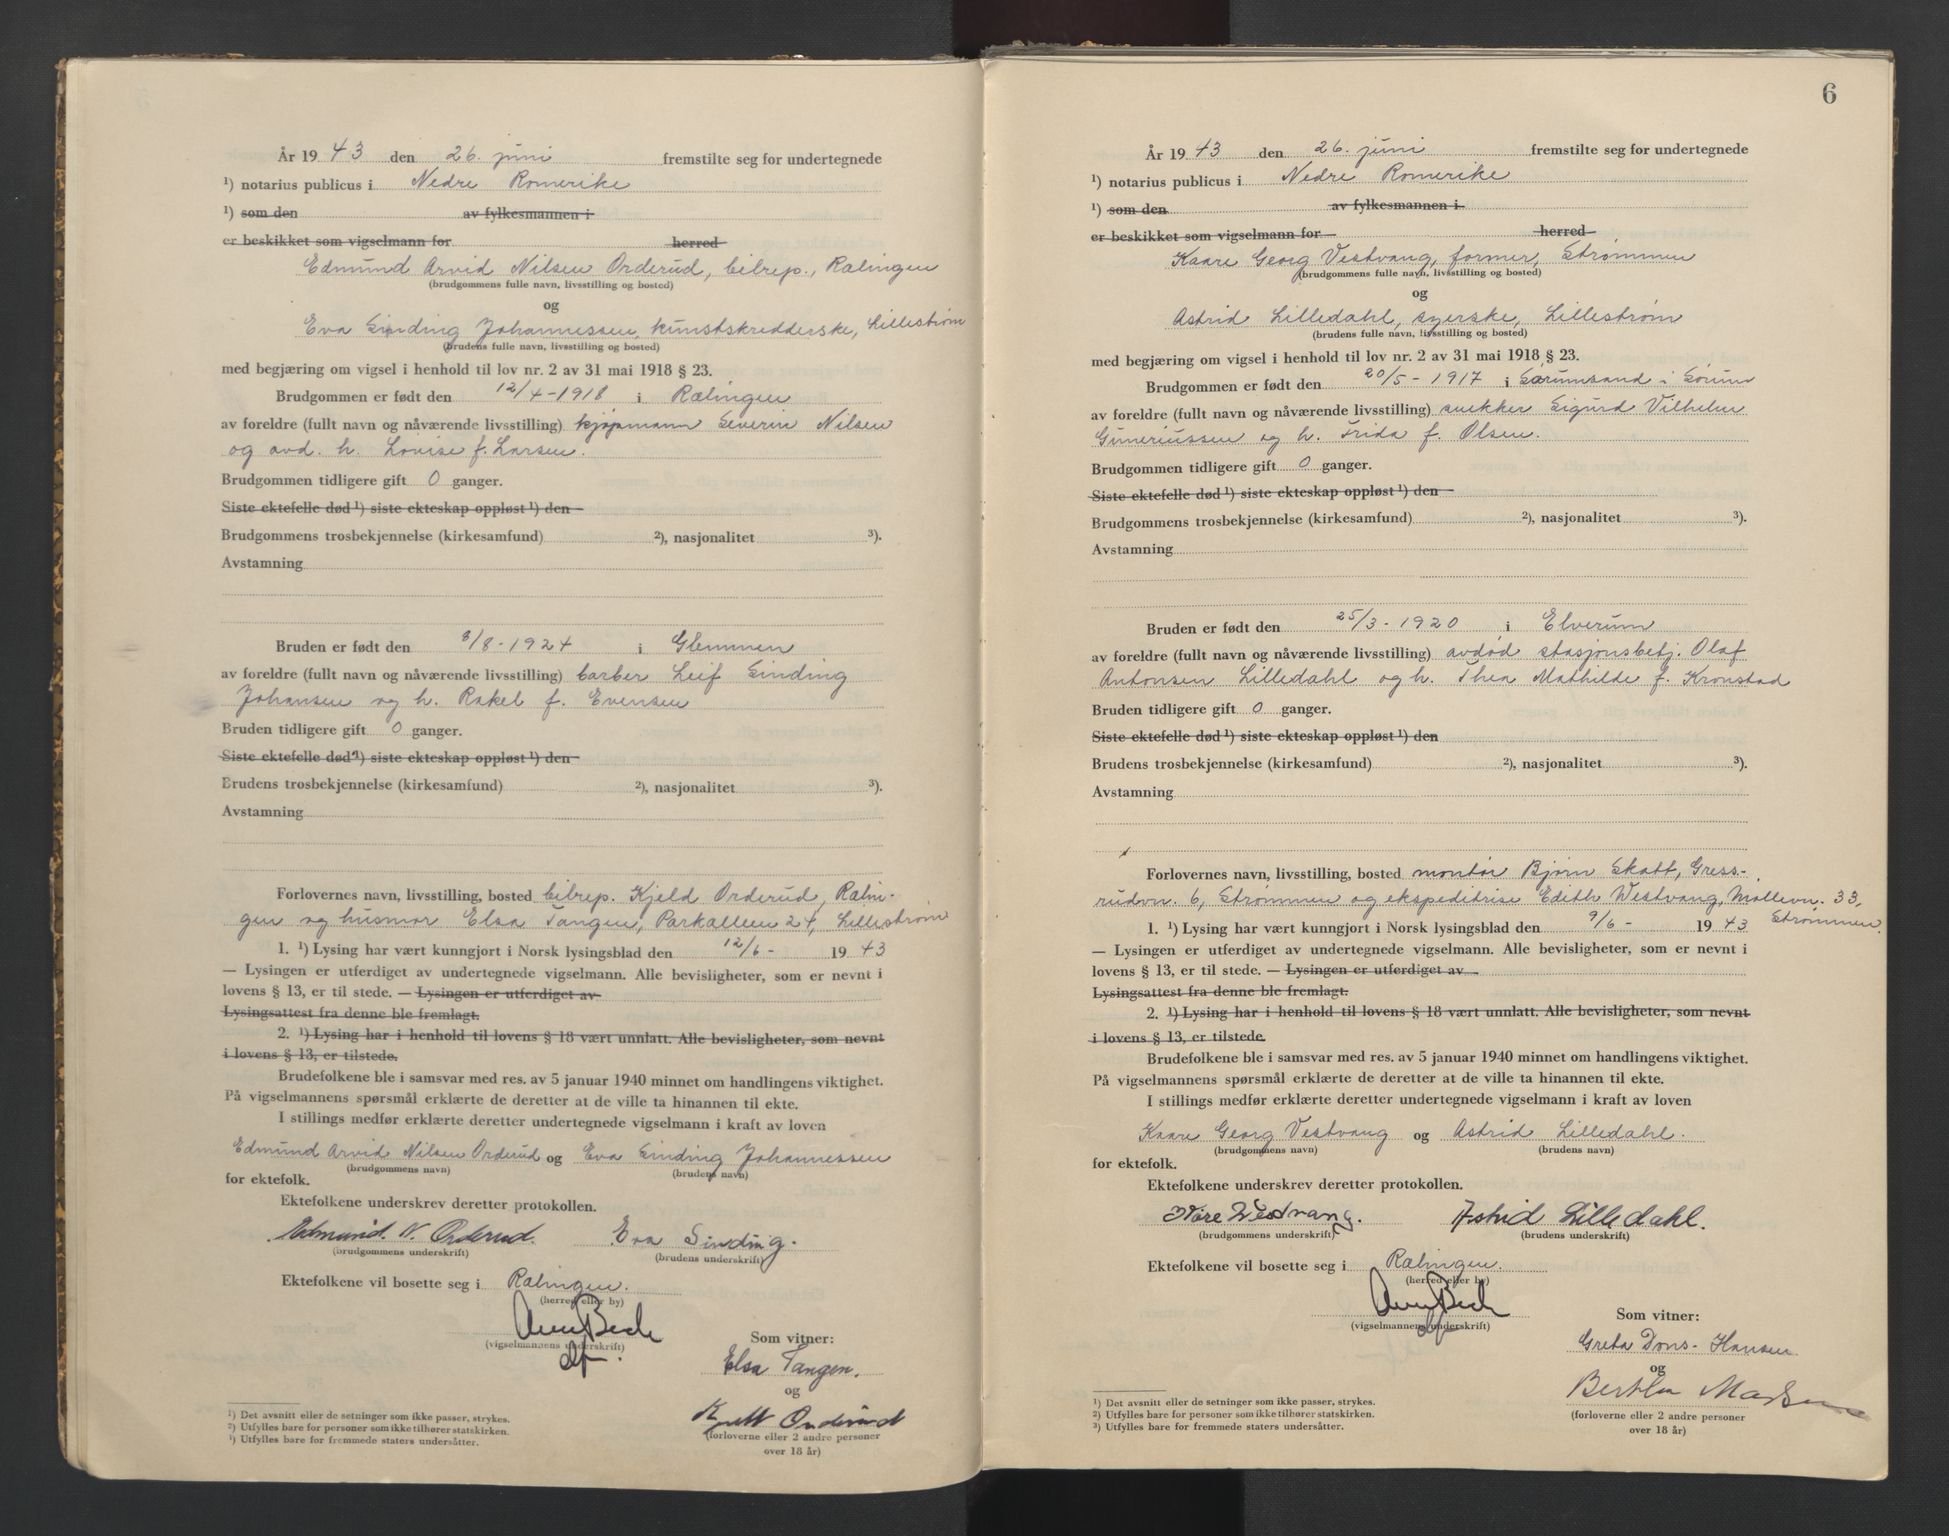 År 19 43 den 26. juni fremstilte seg for undertegnede
¹) notarius publicus i Nedre Romerike
¹) som den av fylkesmannen i
er beskikket som vigselmann for herred
Edmund Arvid Nilsen Orderud, bilrep., Rælingen
(brudgommens fulle navn, livsstilling og bosted)
og
Eva Sinding Johannessen, kunstskredderske, Lillestrøm
(brudens fulle navn, livsstilling og bosted)
med begjæring om vigsel i henhold til lov nr. 2 av 31 mai 1918 § 23.
Brudgommen er født den 12/4-1918 i Rælingen
av foreldre (fullt navn og nåværende livsstilling) kjøpmann Severin Nilsen
og avd. h. Lovise f. Larsen.
Brudgommen tidligere gift 0 ganger.
Siste ektefelle død ¹) siste ekteskap oppløst ¹) den
Brudgommens trosbekjennelse (kirkesamfund) ²), nasjonalitet ³).
Avstamning
Bruden er født den 8/8-1924 i Glemmen
av foreldre (fullt navn og nåværende livsstilling) barber Leif Sinding
Johansen og h. Rakel f. Evensen
Bruden tidligere gift 0 ganger.
Siste ektefelle død ¹) siste ekteskap oppløst ¹) den
Brudens trosbekjennelse (kirkesamfund) ²), nasjonalitet ³).
Avstamning
Forlovernes navn, livsstilling, bosted bilrep. Kjeld Orderud, Rælin-
gen og husmor Elsa Tangen, Parkalleen 24, Lillestrøm
1. ¹) Lysing har vært kunngjort i Norsk lysingsblad den 12/6- 19 43
— Lysingen er utferdiget av undertegnede vigselmann. Alle bevisligheter, som er nevnt i
lovens § 13, er til stede. — Lysingen er utferdiget av
Lysingsattest fra denne ble fremlagt.
2. ¹) Lysing har i henhold til lovens § 18 vært unnlatt. Alle bevisligheter, som nevnt
i lovens § 13, er tilstede.
Brudefolkene ble i samsvar med res. av 5 januar 1940 minnet om handlingens viktighet.
På vigselmannens spørsmål erklærte de deretter at de ville ta hinannen til ekte.
I stillings medfør erklærte deretter undertegnede vigselmann i kraft av loven
Edmund Arvid Nilsen Orderud og Eva Sinding Johannessen
(brudgommens navn) (brudens navn)
for ektefolk.
Ektefolkene underskrev deretter protokollen.
Edmund. N. Orderud. Eva Sinding.
(brudgommens underskrift) (brudens underskrift)
Ektefolkene vil bosette seg i Rælingen.
(herred eller by)
(vigselmannens underskrift) Som vitner:
Elsa Tangen.
og
Orderud
(forloverne eller 2 andre personer
over 18 år)
¹) Det avsnitt eller de setninger som ikke passer, strykes.
²) Utfylles bare for personer som ikke tilhører statskirken.
³) Utfylles bare for fremmede staters undersåtter.
6
År 19 43 den 26. juni fremstilte seg for undertegnede
¹) notarius publicus i Nedre Romerike
¹) som den av fylkesmannen i
er beskikket som vigselmann for herred
Kaare Georg Vestvang, former, Strømmen
(brudgommens fulle navn, livsstilling og bosted)
og
Astrid Lilledahl, syerske, Lillestrøm
(brudens fulle navn, livsstilling og bosted)
med begjæring om vigsel i henhold til lov nr. 2 av 31 mai 1918 § 23.
Brudgommen er født den 20/5-1917 i Sørumsand i Sørum
av foreldre (fullt navn og nåværende livsstilling) snekker Sigurd Vilhelm
Guneriussen og h. Frida f. Olsen.
Brudgommen tidligere gift 0 ganger.
Siste ektefelle død ¹) siste ekteskap oppløst ¹) den
Brudgommens trosbekjennelse (kirkesamfund) ²), nasjonalitet ³).
Avstamning
Bruden er født den 25/3-1920 i Elverum
av foreldre (fullt navn og nåværende livsstilling) avdød stasjonsbetj. Olaf
Antonsen Lilledahl og h. Thea Mathilde f. Kronstad
Bruden tidligere gift 0 ganger.
Siste ektefelle død ¹) siste ekteskap oppløst ¹) den
Brudens trosbekjennelse (kirkesamfund) ²), nasjonalitet ³).
Avstamning
Forlovernes navn, livsstilling, bosted montør Bjørn Skatt, Gress-
rudvn. 6, Strømmen og ekspeditrise Edith Westvang, Møllevn. 33,
Strømmen.
1. ¹) Lysing har vært kunngjort i Norsk lysingsblad den 9/6- 19 43
— Lysingen er utferdiget av undertegnede vigselmann. Alle bevisligheter, som er nevnt i
lovens § 13, er til stede. — Lysingen er utferdiget av
Lysingsattest fra denne ble fremlagt.
2. ¹) Lysing har i henhold til lovens § 18 vært unnlatt. Alle bevisligheter, som nevnt
i lovens § 13, er tilstede.
Brudefolkene ble i samsvar med res. av 5 januar 1940 minnet om handlingens viktighet.
På vigselmannens spørsmål erklærte de deretter at de ville ta hinannen til ekte.
I stillings medfør erklærte deretter undertegnede vigselmann i kraft av loven
Kaare Georg Vestvang og Astrid Lilledahl.
(brudgommens navn) (brudens navn)
for ektefolk.
Ektefolkene underskrev deretter protokollen.
Kåre Westvang. Astrid Lilledahl.
(brudgommens underskrift) (brudens underskrift)
Ektefolkene vil bosette seg i Rælingen.
(herred eller by)
(vigselmannens underskrift) Som vitner:
Greta Dons-Hansen
og
(forloverne eller 2 andre personer
over 18 år)
¹) Det avsnitt eller de setninger som ikke passer, strykes.
²) Utfylles bare for personer som ikke tilhører statskirken.
³) Utfylles bare for fremmede staters undersåtter.